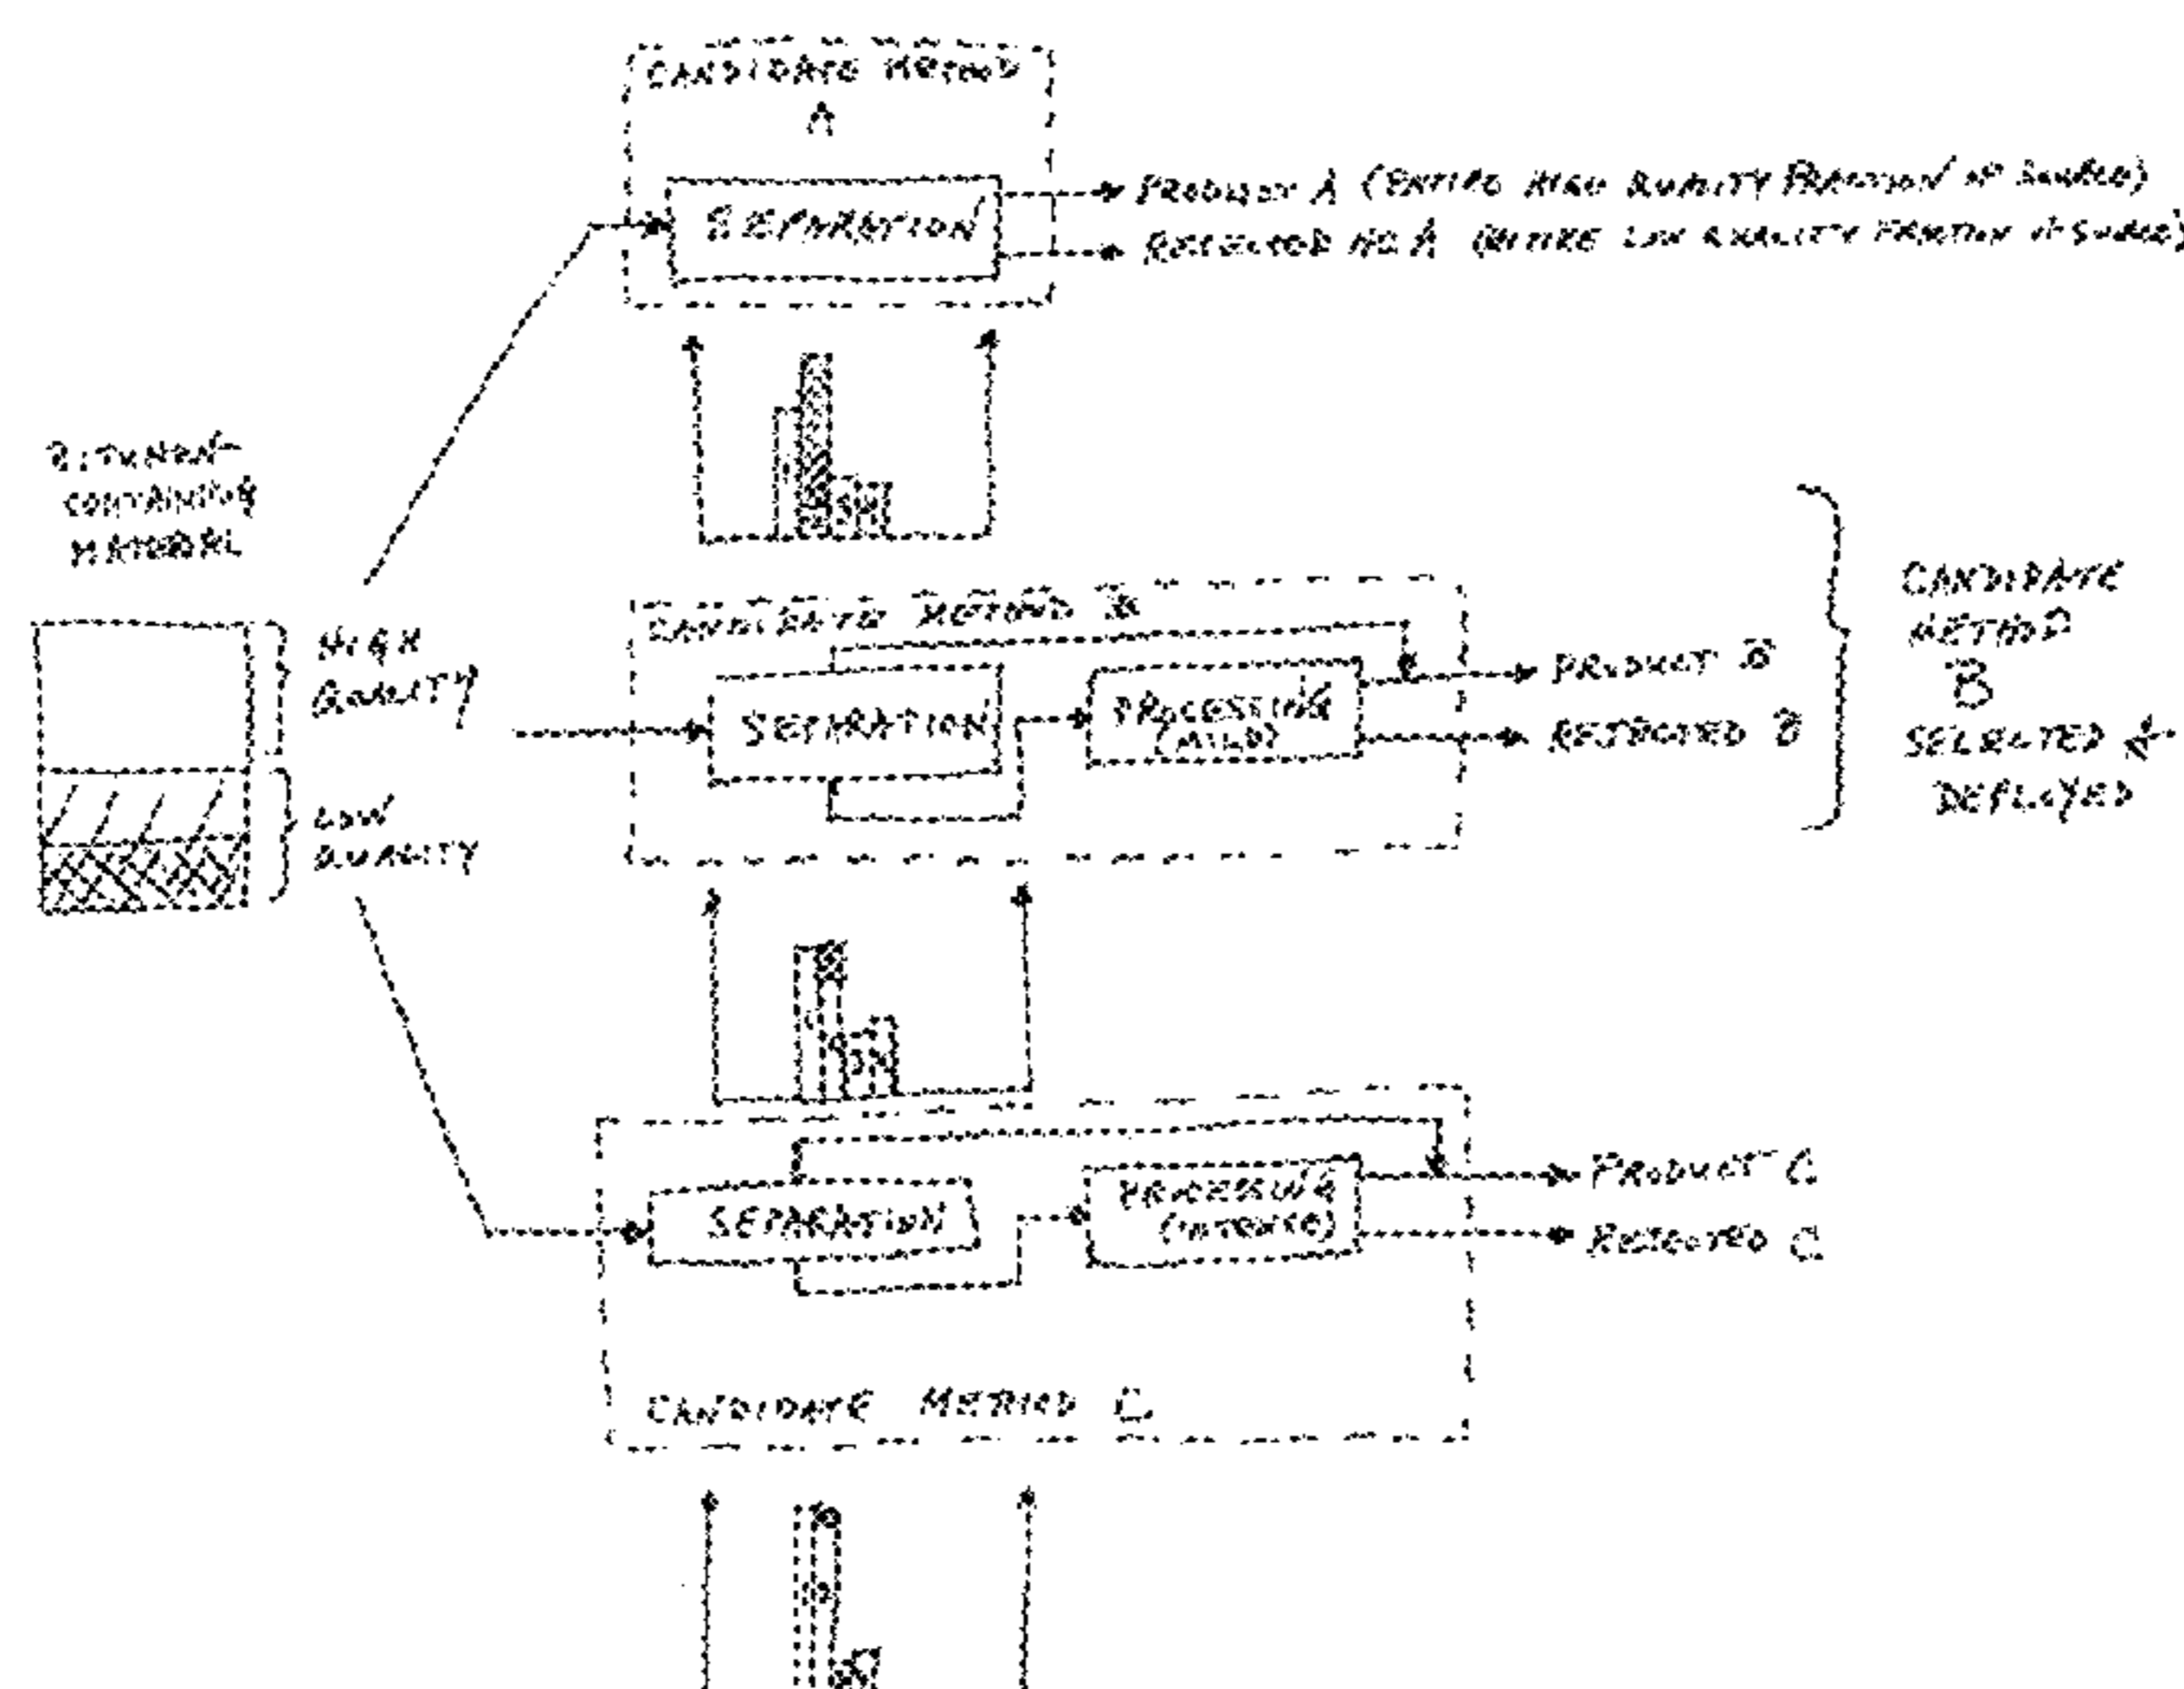 CANDIDATE METHOD
A
SEPARATION
PRODUCT A (ENTIRE HIGH QUALITY FRACTION OF SOURCE)
REJECTED A (ENTIRE LOW QUALITY FRACTION OF SOURCE)
BITUMEN
CONTAINING
MATERIAL
HIGH
QUALITY
LOW
QUALITY
CANDIDATE METHOD B
SEPARATION
PROCESSING
(MILD)
PRODUCT B
REJECTED B
CANDIDATE
METHOD
B
SELECTED &
DEPLOYED
SEPARATION
PROCESSING
(INTENSE)
PRODUCT C
REJECTED C
CANDIDATE METHOD C